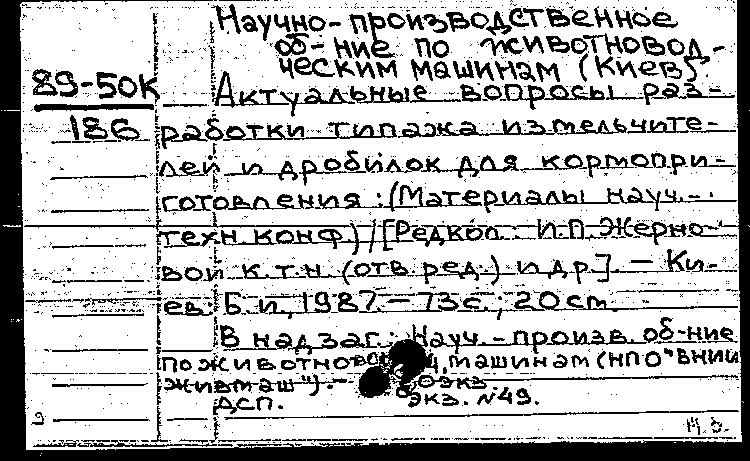 Научно-производственное
об-ние по животновод-
ческим машинам (Киев).
89-50К
186
Актуальные вопросы раз-
работки типажа измельчите-
лей и дробилок для кормопри-
готовления : (Материалы науч.-
техн. конф.) / [Редкол.: И.П. Жерно-
вой к.т.н. (отв. ред.) и др.] — Ки-
ев: Б.и., 1987. — 73с.; 20 см.
В надзаг.: Науч.-произв. об-ние
по животновод. машинам (НПО "ВНИИ
живмаш"). —
экз.
ДСП.
экз. №49.